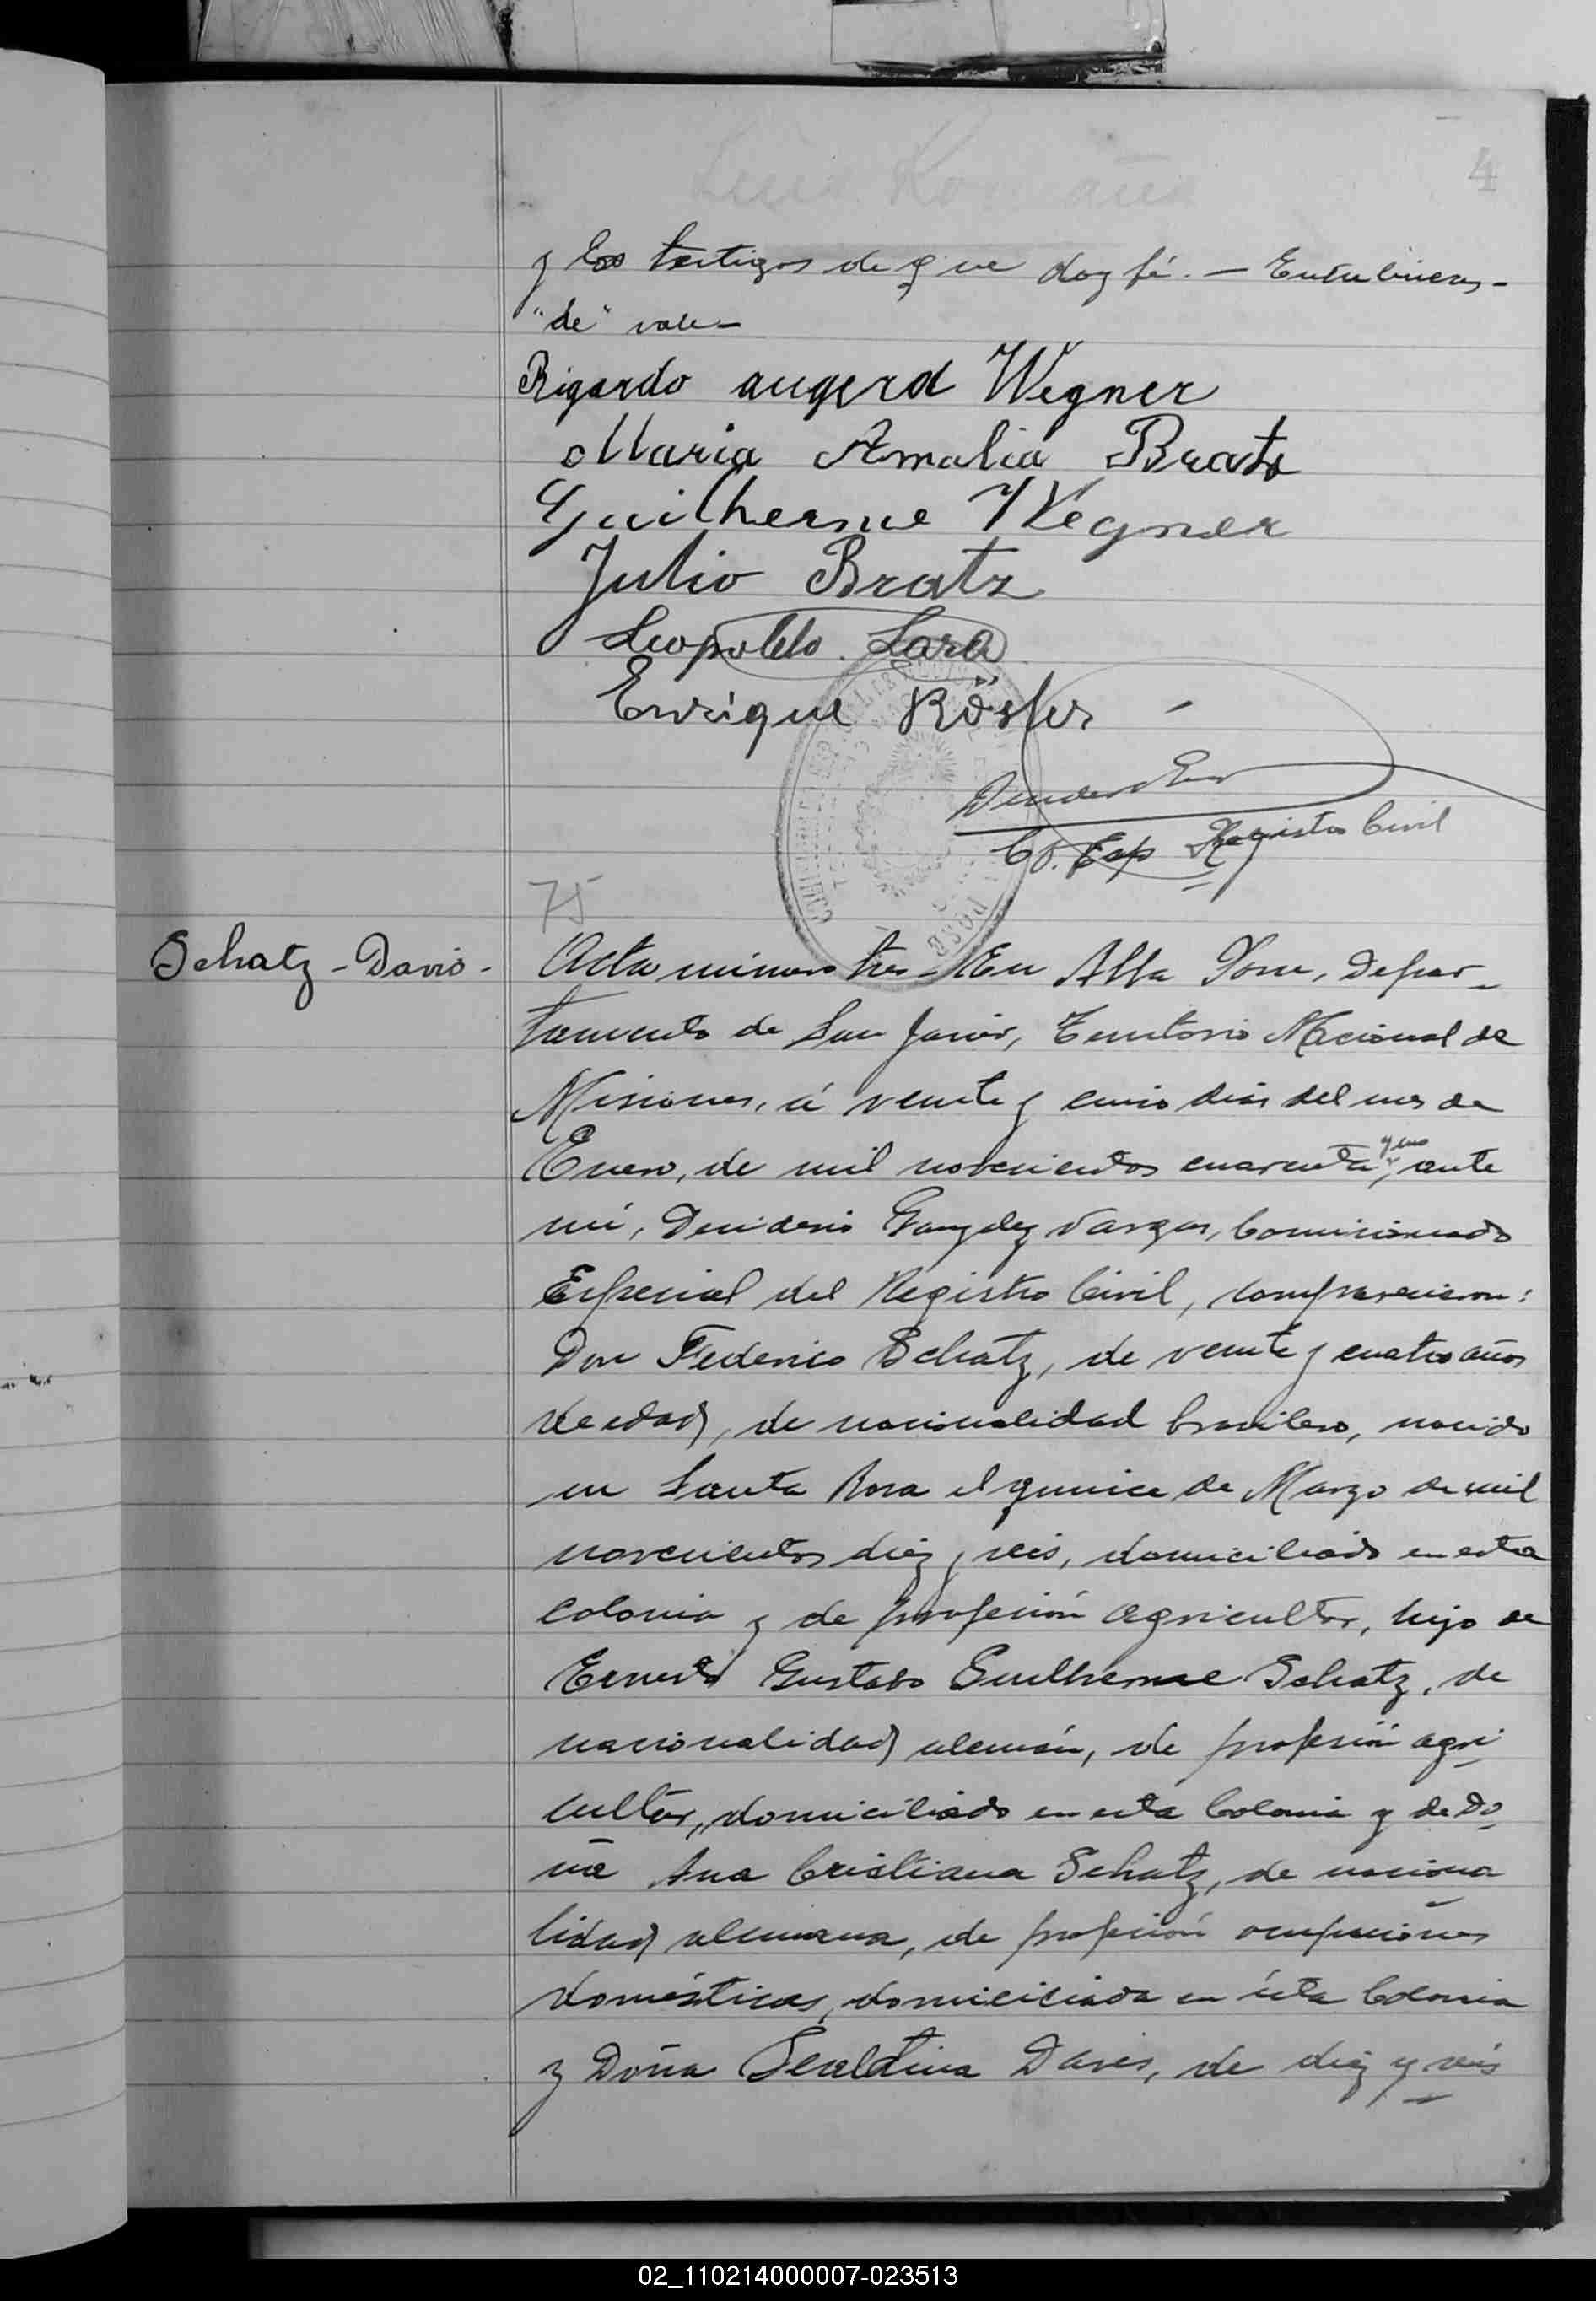 4
y los testigos de que doy fé. — Entre lineas -
"de" vale -
Rigardo augerd Wegner
Maria Amalia Bratz
Guilherme Wegner
Julio Bratz
Leopoldo Lara
Enrique Rösler
Co. Esp Registro Civil
75
Schatz - Davis -
Acta número tres - En Alba Posse, Depar-
tamento de San Javier, Territorio Nacional de
Misiones, á veinte y cinco dias del mes de
Enero, de mil novecientos cuarenta y uno, ante
mi, Desiderio Gonzalez Vargas, Comisionado
Especial del Registro Civil, comparecieron:
Don Federico Schatz, de veinte y cuatro años
de edad, de nacionalidad brasilero, nacido
en Santa Rosa el quince de Marzo de mil
novecientos diez y seis, domiciliado en esta
colonia y de profesión agricultor, hijo de
Ernesto Gustavo Guilherme Schatz, de
nacionalidad alemán, de profesión agri-
cultor, domiciliado en esta Colonia y de Do-
ña Ana Cristiana Schatz, de naciona
lidad alemana, de profesión ocupaciones
domésticas, domiciliada en ésta Colonia
y Doña Davis, de diez y seis
02_110214000007-023513